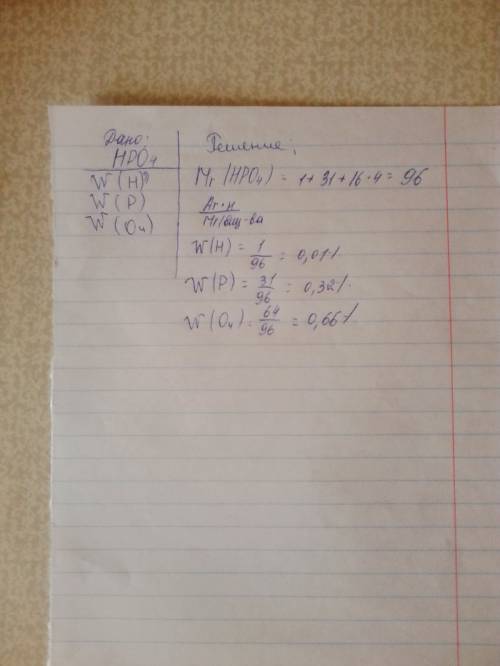 Дано:
HPO4
W(H)
W(P)
W(O4)
Решение:
Mr(HPO4) = 1+31+16·4 = 96
Ar·n
Mr(общ-ва
W(H) = 1/96 = 0,01%
W(P) = 31/96 = 0,32%
W(O4) = 64/96 = 0,66%